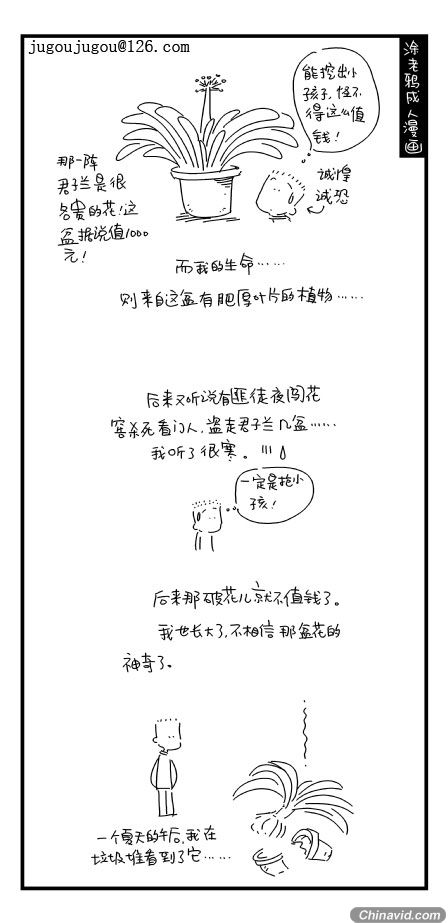 jugoujugou@126.com
涂老鸦成人漫画
能挖出小
孩子,怪不
得这么值
钱!
那一阵
君子兰是很
名贵的花!这
盆据说值1000
元!
诚惶
诚恐
而我的生命……
则来自这盆有肥厚叶片的植物……
后来又听说有匪徒夜闯花
窖杀死看门人,盗走君子兰几盆……
我听了很寒。!!!
一定是抢小
孩!
后来那破花儿就不值钱了。
我也长大了,不相信那盆花的
神奇了。
一个夏天的午后,我在
垃圾堆看到了它……
Chinavid.com